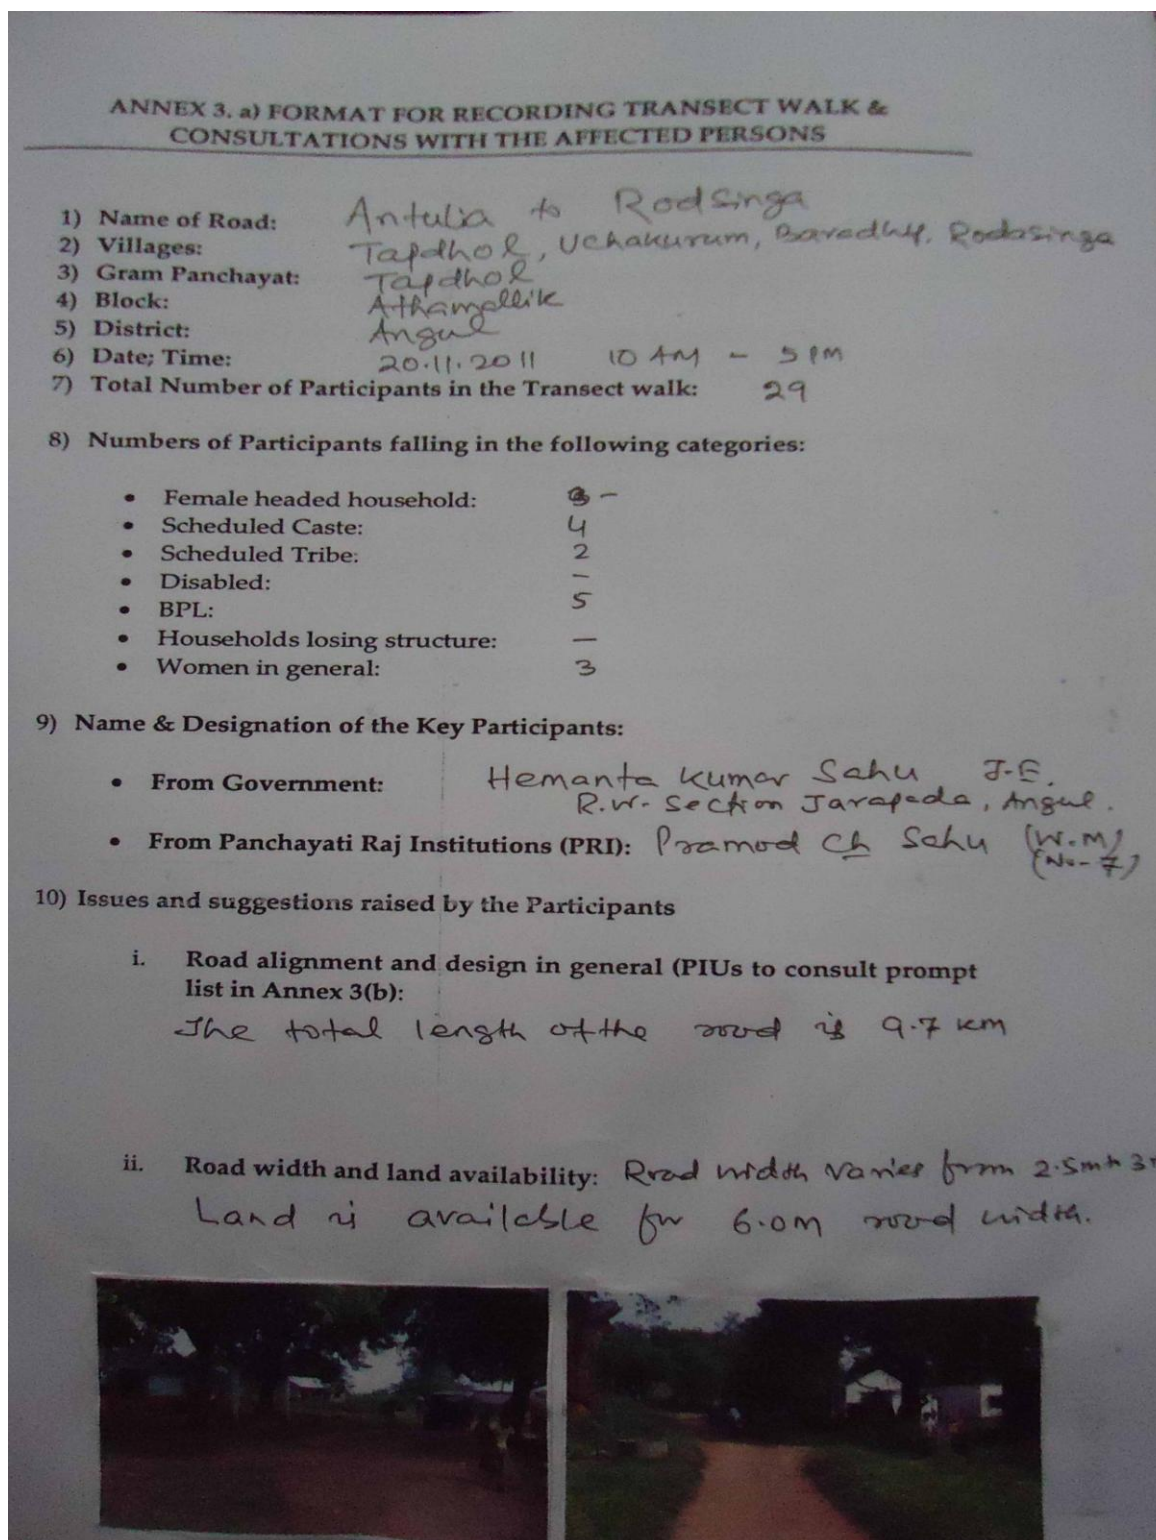 ANNEX 3. a) FORMAT FOR RECORDING TRANSECT WALK &
CONSULTATIONS WITH THE AFFECTED PERSONS
1) Name of Road: Antulia to Rodsinga
2) Villages: Tapdhol, Uchakurum, Rodasinga
3) Gram Panchayat: Tapdhol
4) Block: Athamallik
5) District: Angul
6) Date; Time: 20.11.2011 10 AM - 5 PM
7) Total Number of Participants in the Transect walk: 29
8) Numbers of Participants falling in the following categories:
• Female headed household: -
• Scheduled Caste: 4
• Scheduled Tribe: 2
• Disabled: -
• BPL: 5
• Households losing structure: —
• Women in general: 3
9) Name & Designation of the Key Participants:
• From Government: Hemanta Kumar Sahu J.E.
R.W. Section Jarapada, Angul.
• From Panchayati Raj Institutions (PRI): Pramod Ch Sahu (W.M)
(No-7)
10) Issues and suggestions raised by the Participants
i. Road alignment and design in general (PIUs to consult prompt
list in Annex 3(b):
The total length of the road is 9.7 km
ii. Road width and land availability: Road width varies from 2.5m
Land is available for 6.0m road width.